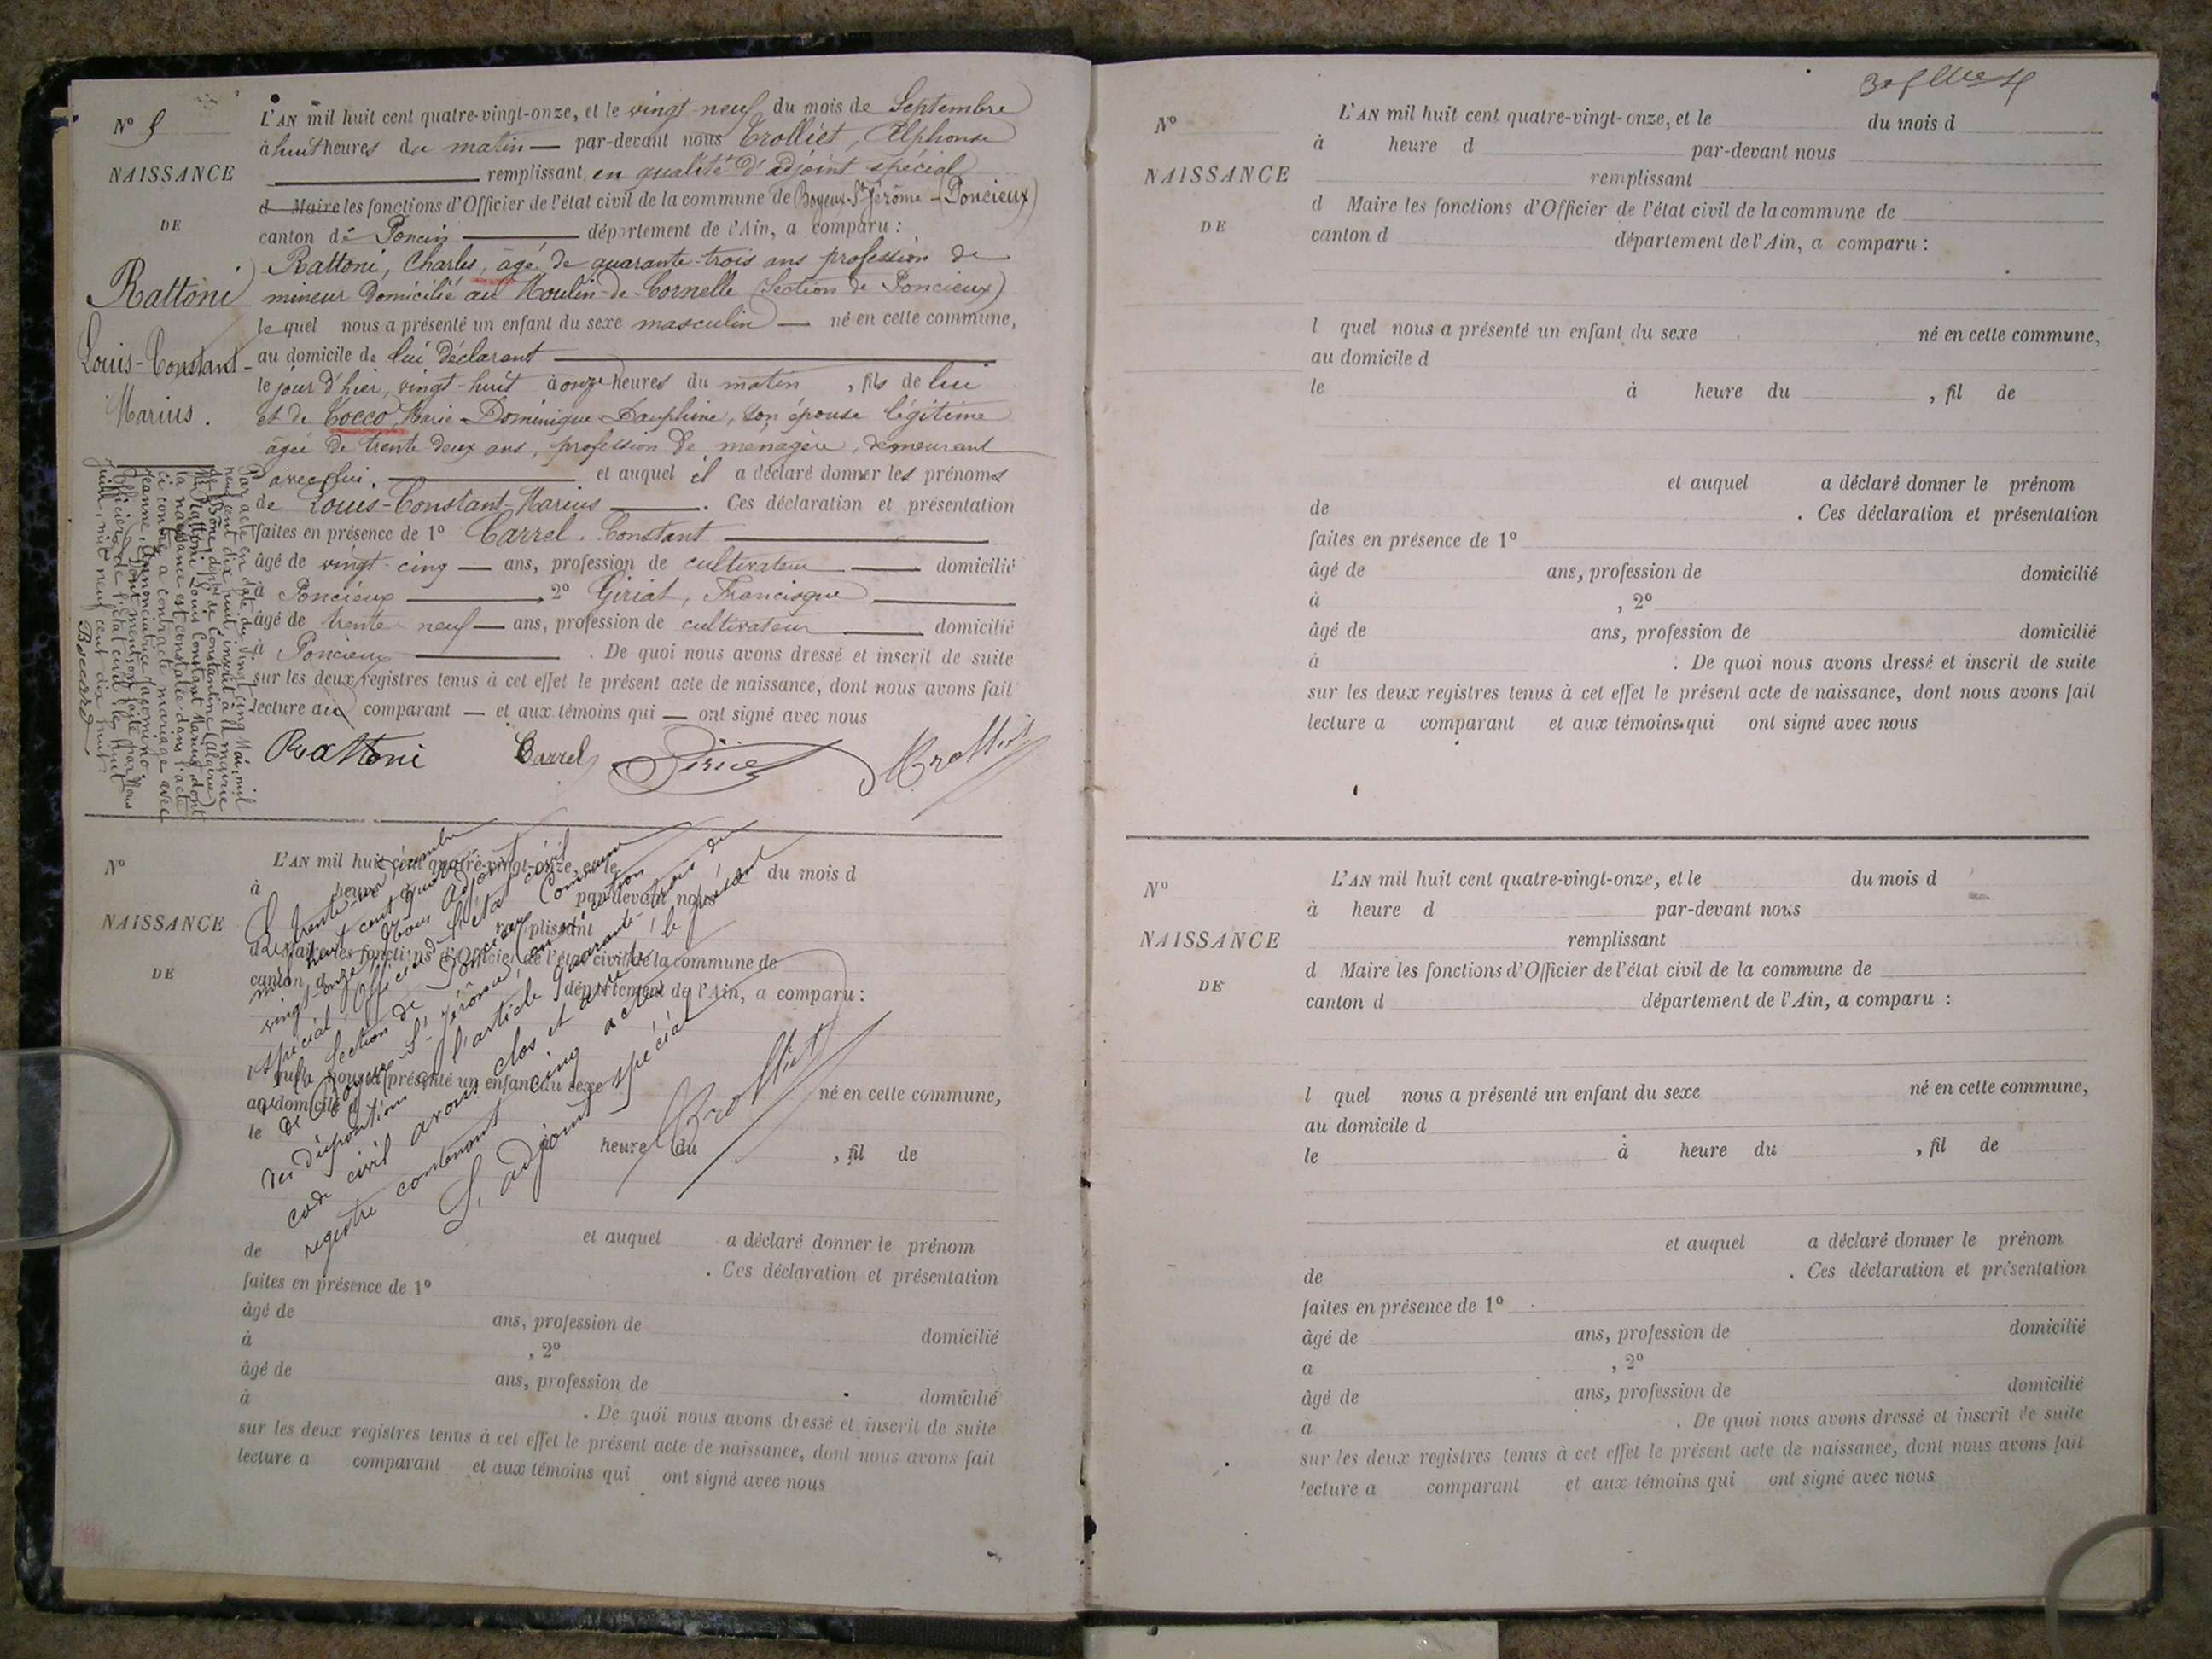 N° 5
NAISSANCE
DE
Rattoni
Louis-Constant-
Marius.
L'AN mil huit cent quatre-vingt-onze, et le vingt-neuf du mois de Septembre
à huit heures du matin — par-devant nous Trolliet, Alphonse
remplissant en qualité d'adjoint spécial
d Maire les fonctions d'Officier de l'état civil de la commune de Boyeux-St Jérôme - (Poncieux)
canton de Poncin — département de l'Ain, a comparu :
Rattoni, Charles, âgé de quarante-trois ans profession de
mineur domicilié au Moulin-de-Cornelle (Section de Poncieux)
lequel nous a présenté un enfant du sexe masculin — né en cette commune,
au domicile de lui déclarant —
le jour d'hier, vingt-huit à onze heures du matin , fils de lui
et de Cocco, Marie-Dominique-Dauphine, son épouse légitime
âgée de trente deux ans, profession de ménagère, demeurant
avec lui, — et auquel il a déclaré donner les prénoms
de Louis-Constant-Marius — . Ces déclaration et présentation
faites en présence de 1° Carrel Constant —
âgé de vingt-cinq — ans, profession de cultivateur — domicilié
à Poncieux — , 2° Giriat, Francisque —
âgé de trente neuf — ans, profession de cultivateur — domicilié
à Poncieux — . De quoi nous avons dressé et inscrit de suite
sur les deux registres tenus à cet effet le présent acte de naissance, dont nous avons fait
lecture au comparant — et aux témoins qui — ont signé avec nous
Rattoni Carrel Trolliet
Par acte en date du vingt cinq Mai, mil
neuf cent dix huit, inscrit à la mairie
de Bône, dépt de Constantine (Algérie)
Mr Rattoni Louis Constant Marius dont
la naissance est constatée dans l'acte
ci contre a contracté mariage avec
Jeanne, Annonciatrice Giacomino.
Dont mention faite par Nous
Officier de l'Etat civil le huit
Juin, mil neuf cent dix huit.
Boccard
N°
NAISSANCE
DE
L'AN mil huit cent quatre-vingt-onze, et le du mois d
à heure par-devant nous
remplissant
d Maire les fonctions d'Officier de l'état civil de la commune de
canton d département de l'Ain, a comparu :
l quel nous a présenté un enfant du sexe né en cette commune,
au domicile d
le heure du , fil de
et auquel a déclaré donner le prénom
de . Ces déclaration et présentation
faites en présence de 1°
âgé de ans, profession de domicilié
à , 2°
âgé de ans, profession de domicilié
à . De quoi nous avons dressé et inscrit de suite
sur les deux registres tenus à cet effet le présent acte de naissance, dont nous avons fait
lecture a comparant et aux témoins qui ont signé avec nous
Le trente-un Décembre
mil huit cent quatre-
vingt-onze, Nous adjoint
spécial, Officier de l'état civil
de la Section de Poncieux, Commune
de Boyeux-St Jérôme, en exécution
des dispositions de l'article quarante-trois du
code civil avons clos et arrêté le présent
registre contenant cinq actes
L'adjoint spécial
Trolliet
N°
NAISSANCE
DE
L'AN mil huit cent quatre-vingt-onze, et le du mois d
à heure d par-devant nous
remplissant
d Maire les fonctions d'Officier de l'état civil de la commune de
canton d département de l'Ain, a comparu :
l quel nous a présenté un enfant du sexe né en cette commune,
au domicile d
le à heure du , fil de
et auquel a déclaré donner le prénom
de . Ces déclaration et présentation
faites en présence de 1°
âgé de ans, profession de domicilié
à , 2°
âgé de ans, profession de domicilié
à . De quoi nous avons dressé et inscrit de suite
sur les deux registres tenus à cet effet le présent acte de naissance, dont nous avons fait
lecture a comparant et aux témoins qui ont signé avec nous
N°
NAISSANCE
DE
L'AN mil huit cent quatre-vingt-onze, et le du mois d
à heure d par-devant nous
remplissant
d Maire les fonctions d'Officier de l'état civil de la commune de
canton d département de l'Ain, a comparu :
l quel nous a présenté un enfant du sexe né en cette commune,
au domicile d
le à heure du , fil de
et auquel a déclaré donner le prénom
de . Ces déclaration et présentation
faites en présence de 1°
âgé de ans, profession de domicilié
a , 2°
âgé de ans, profession de domicilié
à . De quoi nous avons dressé et inscrit de suite
sur les deux registres tenus à cet effet le présent acte de naissance, dont nous avons fait
lecture a comparant et aux témoins qui ont signé avec nous